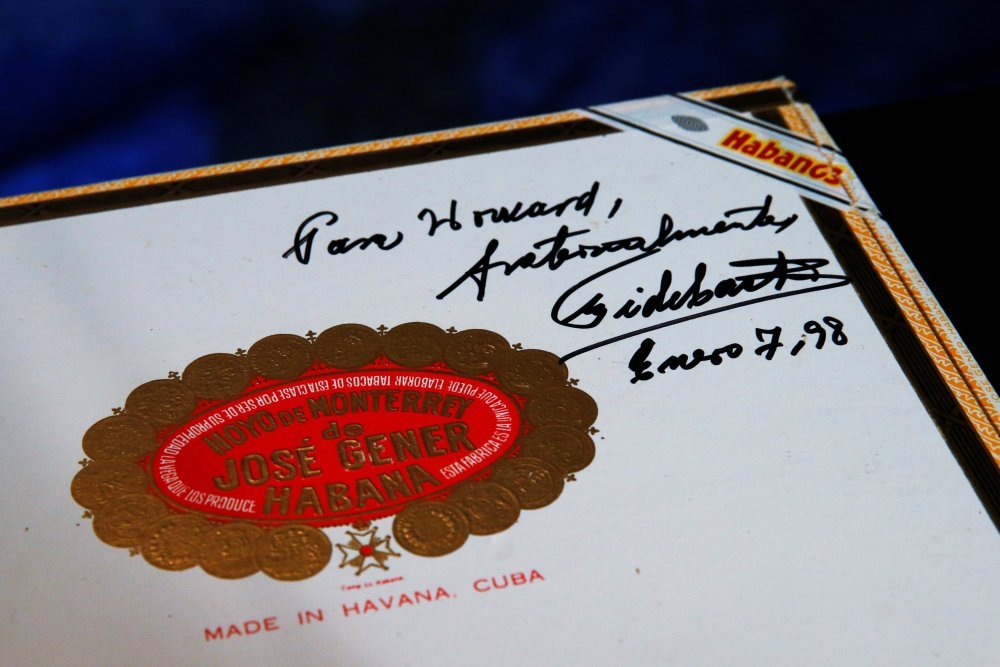 Habanos
Para Howard,
fraternalmente,
Fidel Castro
Enero 7, 98
ESTA FABRICA ES LA UNICA QUE PUEDE ELABORAR TABACOS DE ESTA CLASE POR SER DE SU PROPIEDAD LA VEGA QUE LOS PRODUCE
HOYO DE MONTERREY
de
JOSÉ GENER
HABANA
MADE IN HAVANA, CUBA